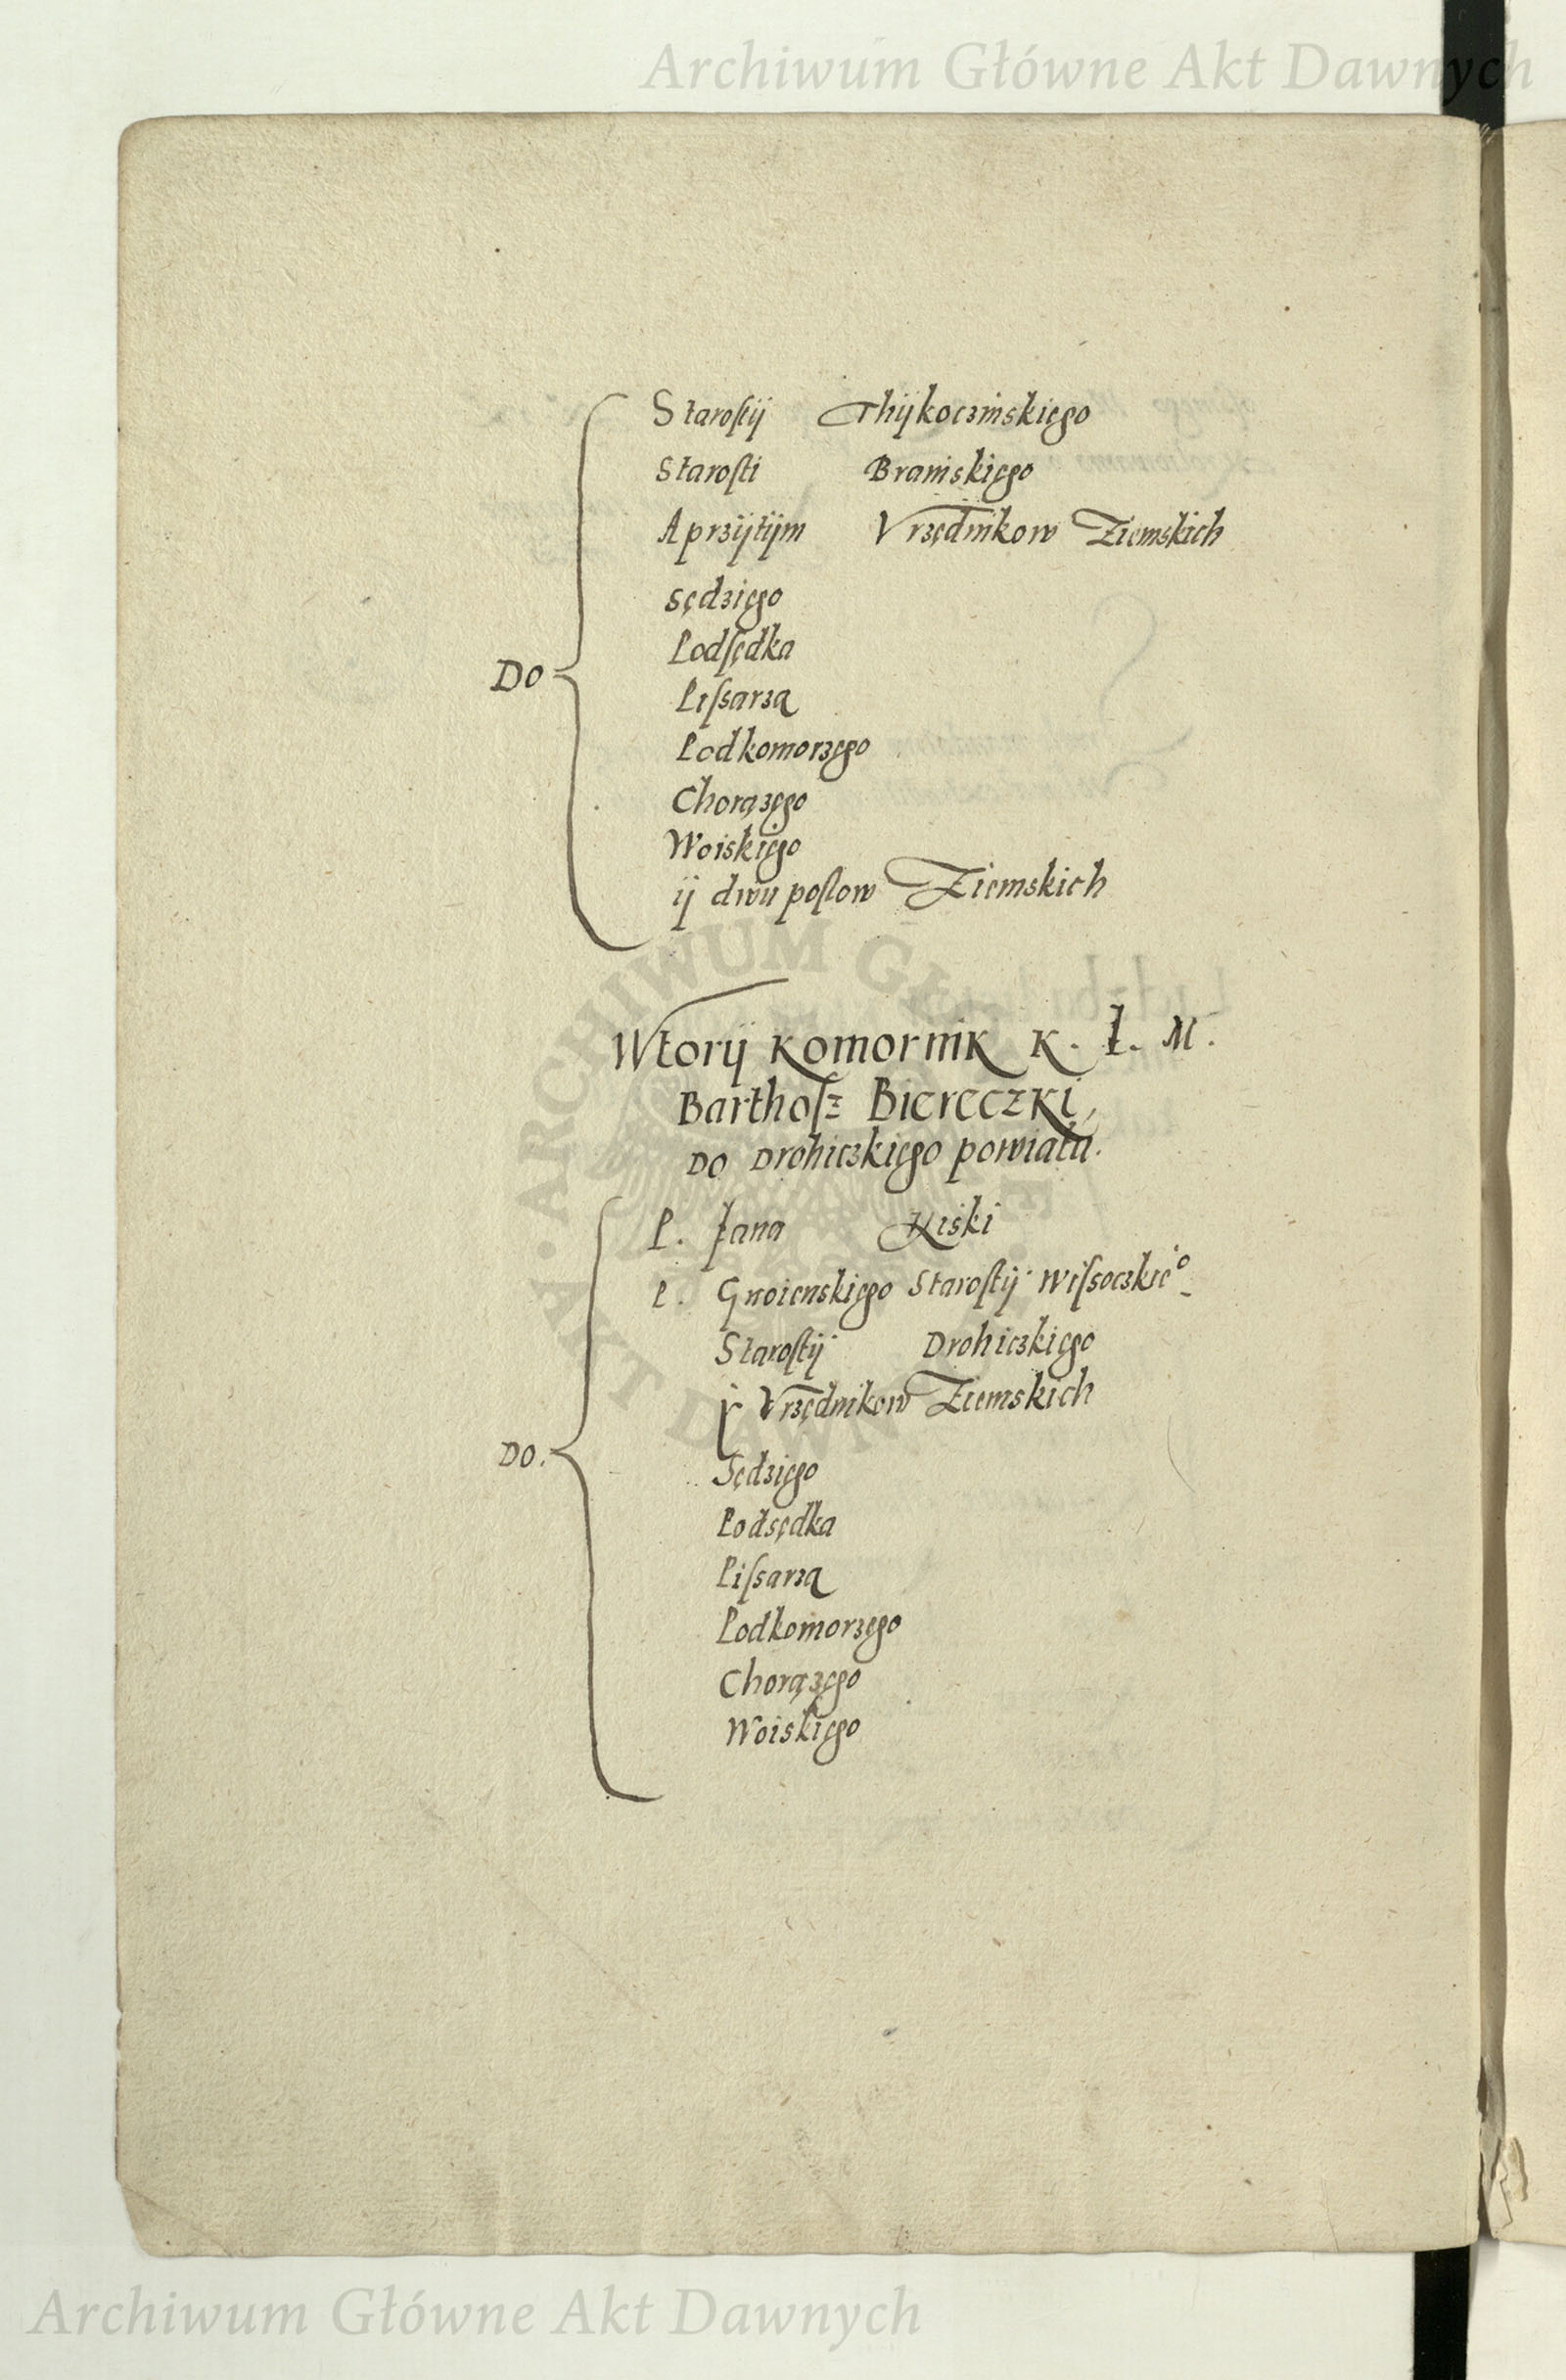 Archiwum Główne Akt Dawnych
Starosţij Thijkoczinskięgo
Starosti Branskięgo
A przijtijm Vrzędnikow Ziemskich
Sędzięgo
Podsędka
Pissarzą
DO
Podkomorzęgo
Chorązęgo
Woiskięgo
ij dwu posłow Ziemskich
Wtorij Komornik K. I. M.
Barthosz Biereczki,
DO Drohiczkięgo powiatu.
P. Jana Kiski
P. Gnoienskięgo Starostij Wissoczkie°
Starostij Drohiczkięgo
Y Vrzędnikow Ziemskich
DO.
Sędzięgo
Podsędka
Pissarzą
Podkomorzęgo
Chorązęgo
Woiskięgo
ARCHIWUM GŁÓWNE AKT DAWNYCH
Archiwum Główne Akt Dawnych